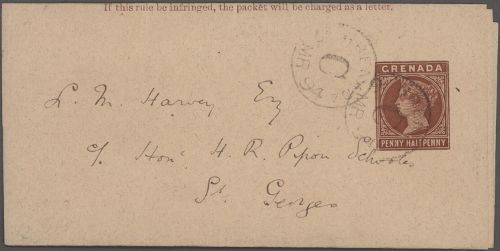 If this rule be infringed, the packet will be charged as a letter.
GRENADA
C
MR
94
PENNY HALF PENNY
L. M. Harvey Esq
c/o Hon: H. R. Pipon Schooles
St. Georges